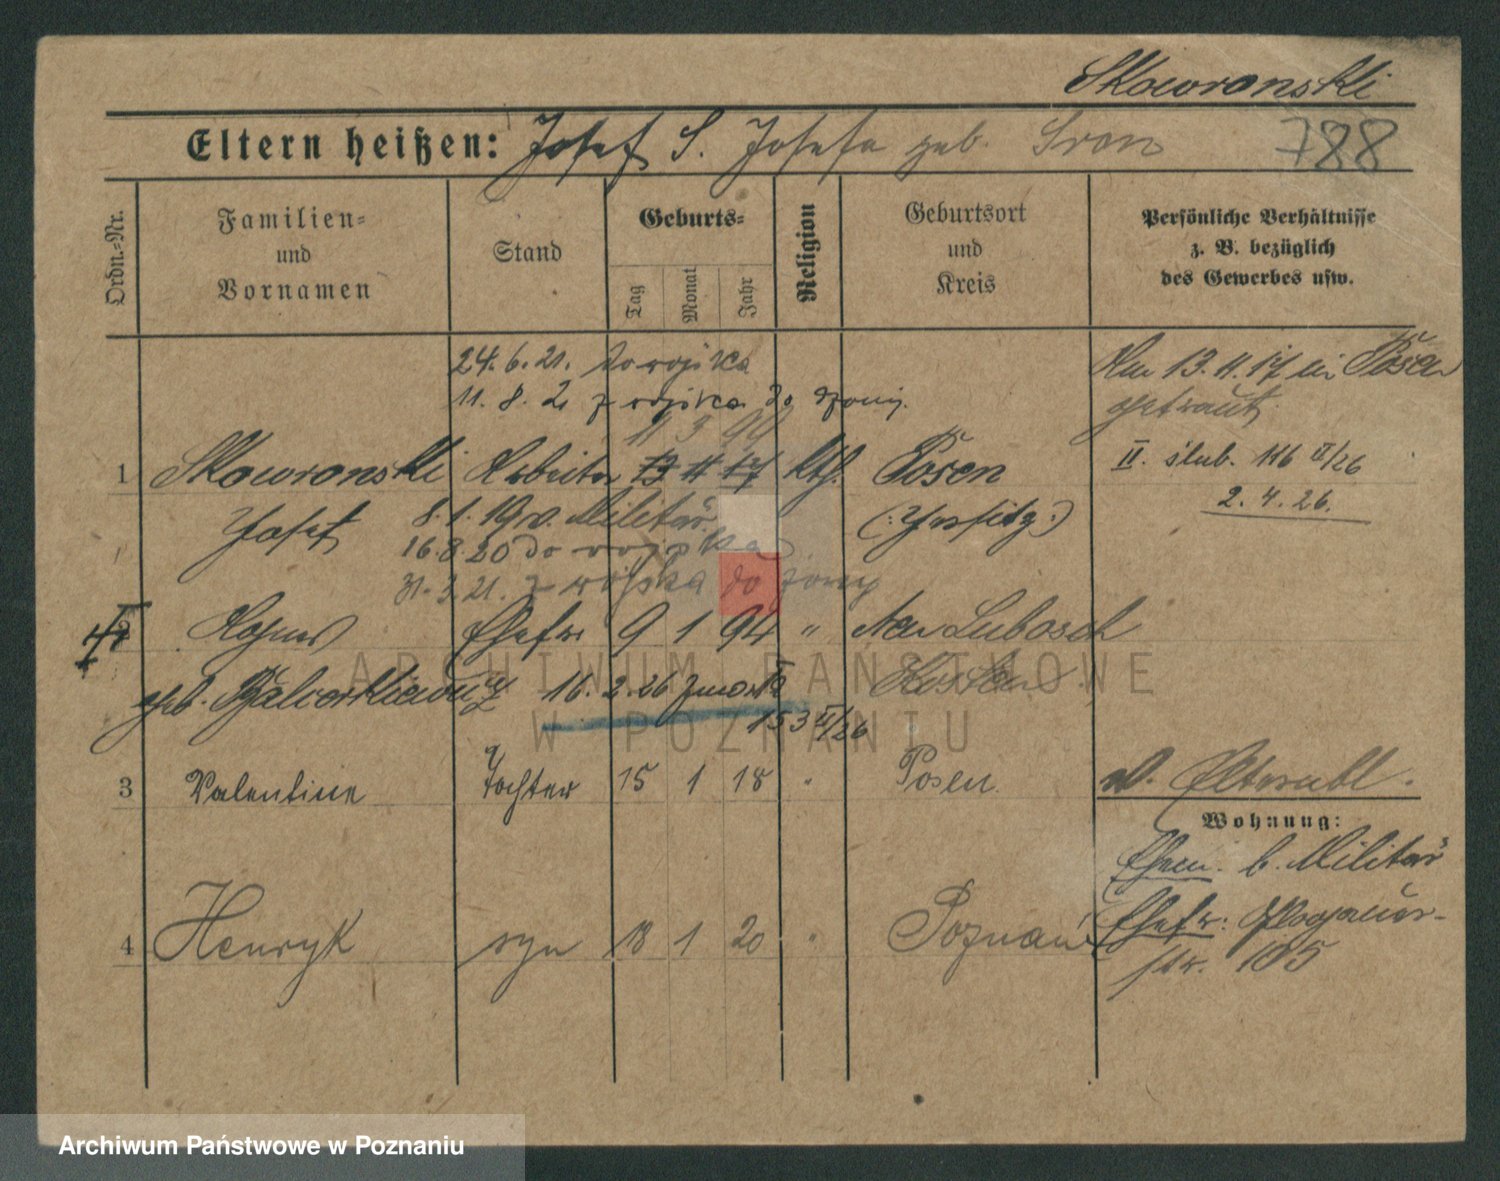 Skowronski
Eltern heißen: Josef S. Josefa geb. Sron
788
Ordn.-Nr.
Familien-
und
Vornamen
Stand
Geburts-
Tag
Monat
Jahr
Religion
Geburtsort
und
Kreis
Persönliche Verhältnisse
z. B. bezüglich
des Gewerbes usw.
24. 6. 21. do wojska
11. 8. 21 z wojska do żony.
Am 13. 11. 17 in Posen
getraut.
11 3 94
1 Skowronski Arbeiter 13 11 17 kth. Posen
II. ślub. 116 II/26
2. 4. 26.
Josef 8. 1. 19 v. Militär
(:Jersitz:)
16. 8. 20 do wojska
31. 3. 21. z wojska do żony
2 Agnes Ehefr 9 1 94 " Luboseh
geb. 16. 2. 26 zmarła
Kosten
153 II/26
3 Valentine Tochter 15 1 18 " Posen
v. Elternbl.
Wohnung:
Ehem. b. Militär
4 Henryk syn 18 1 20 " Poznań
Ehefr: Glogauer-
str. 105
ARCHIWUM PAŃSTWOWE
W POZNANIU
Archiwum Państwowe w Poznaniu